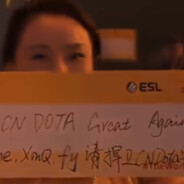 ESL
CN DOTA Great Again
me. XmQ. fy 请捍卫CNDota